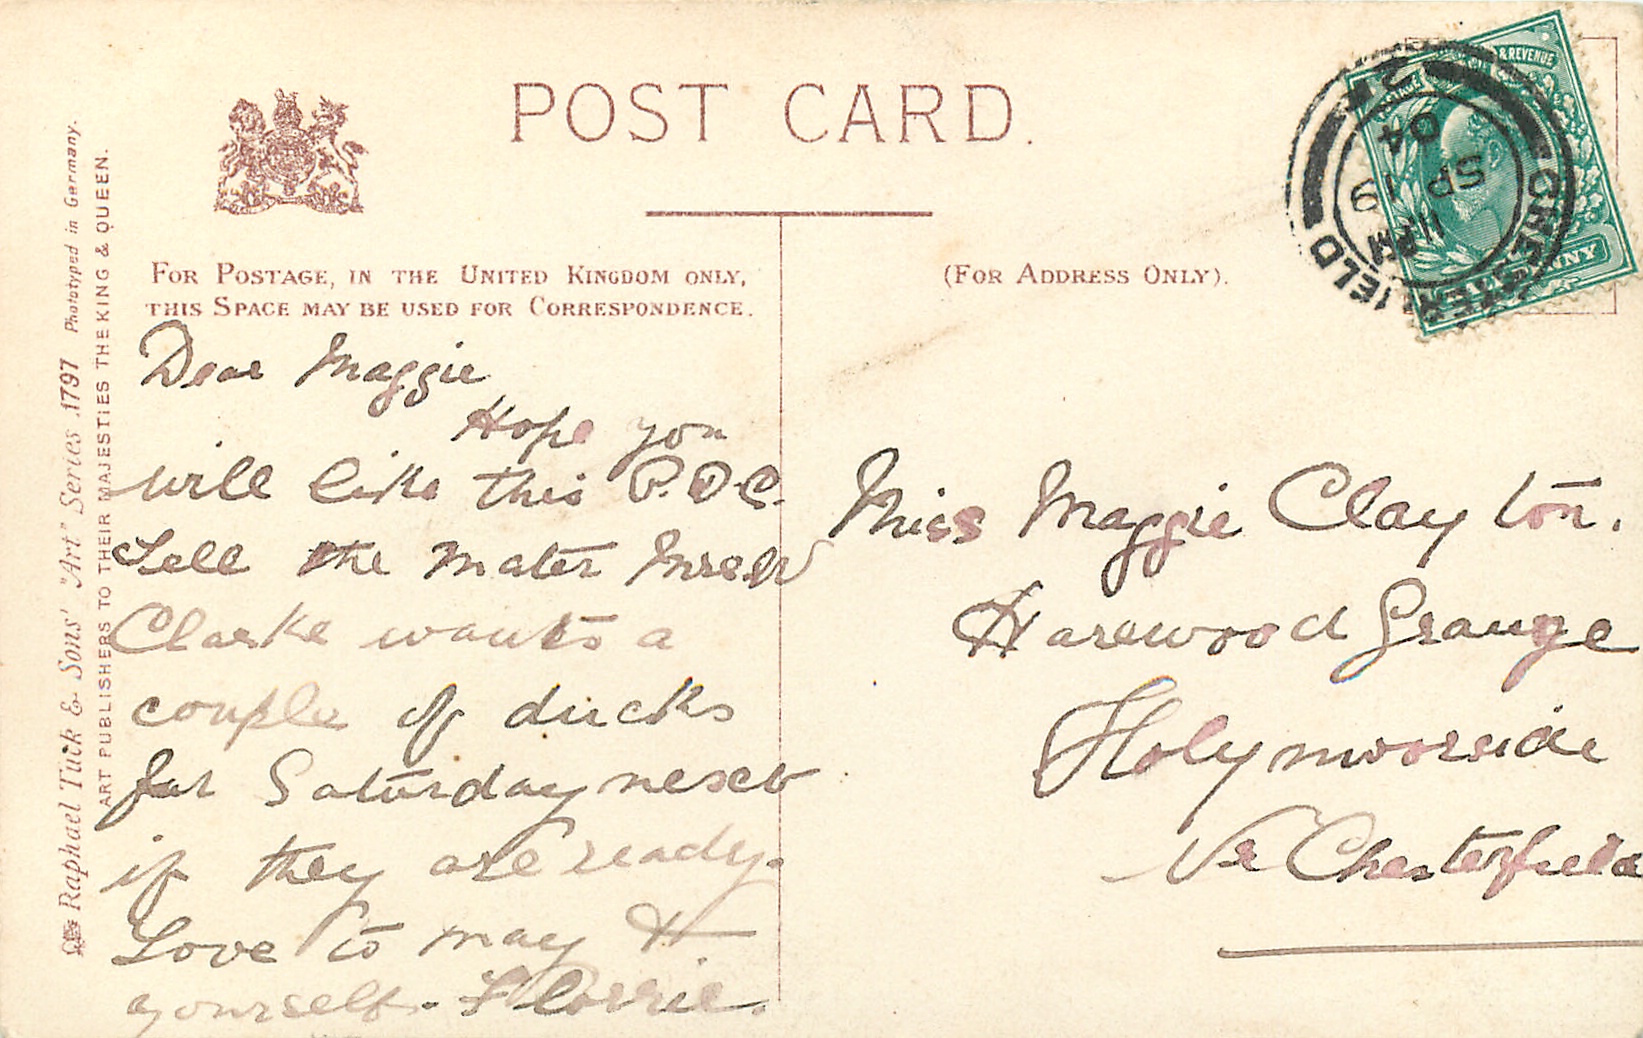 POST CARD.
FOR POSTAGE, IN THE UNITED KINGDOM ONLY,
THIS SPACE MAY BE USED FOR CORRESPONDENCE.
(FOR ADDRESS ONLY).
Raphael Tuck & Sons' "Art" Series 1797 Phototyped in Germany.
ART PUBLISHERS TO THEIR MAJESTIES THE KING & QUEEN.
Dear Maggie
Hope you
will like this P.O.C.
Tell the Mater
Clarke wants a
couple of ducks
for Saturday next
if they are ready.
Love to May &
yourself. Florrie.
Miss Maggie Clayton.
Harewood Grange
Holymoorside
Nr Chesterfield
& REVENUE
CHESTERFIELD
11 AM
SP 19
04